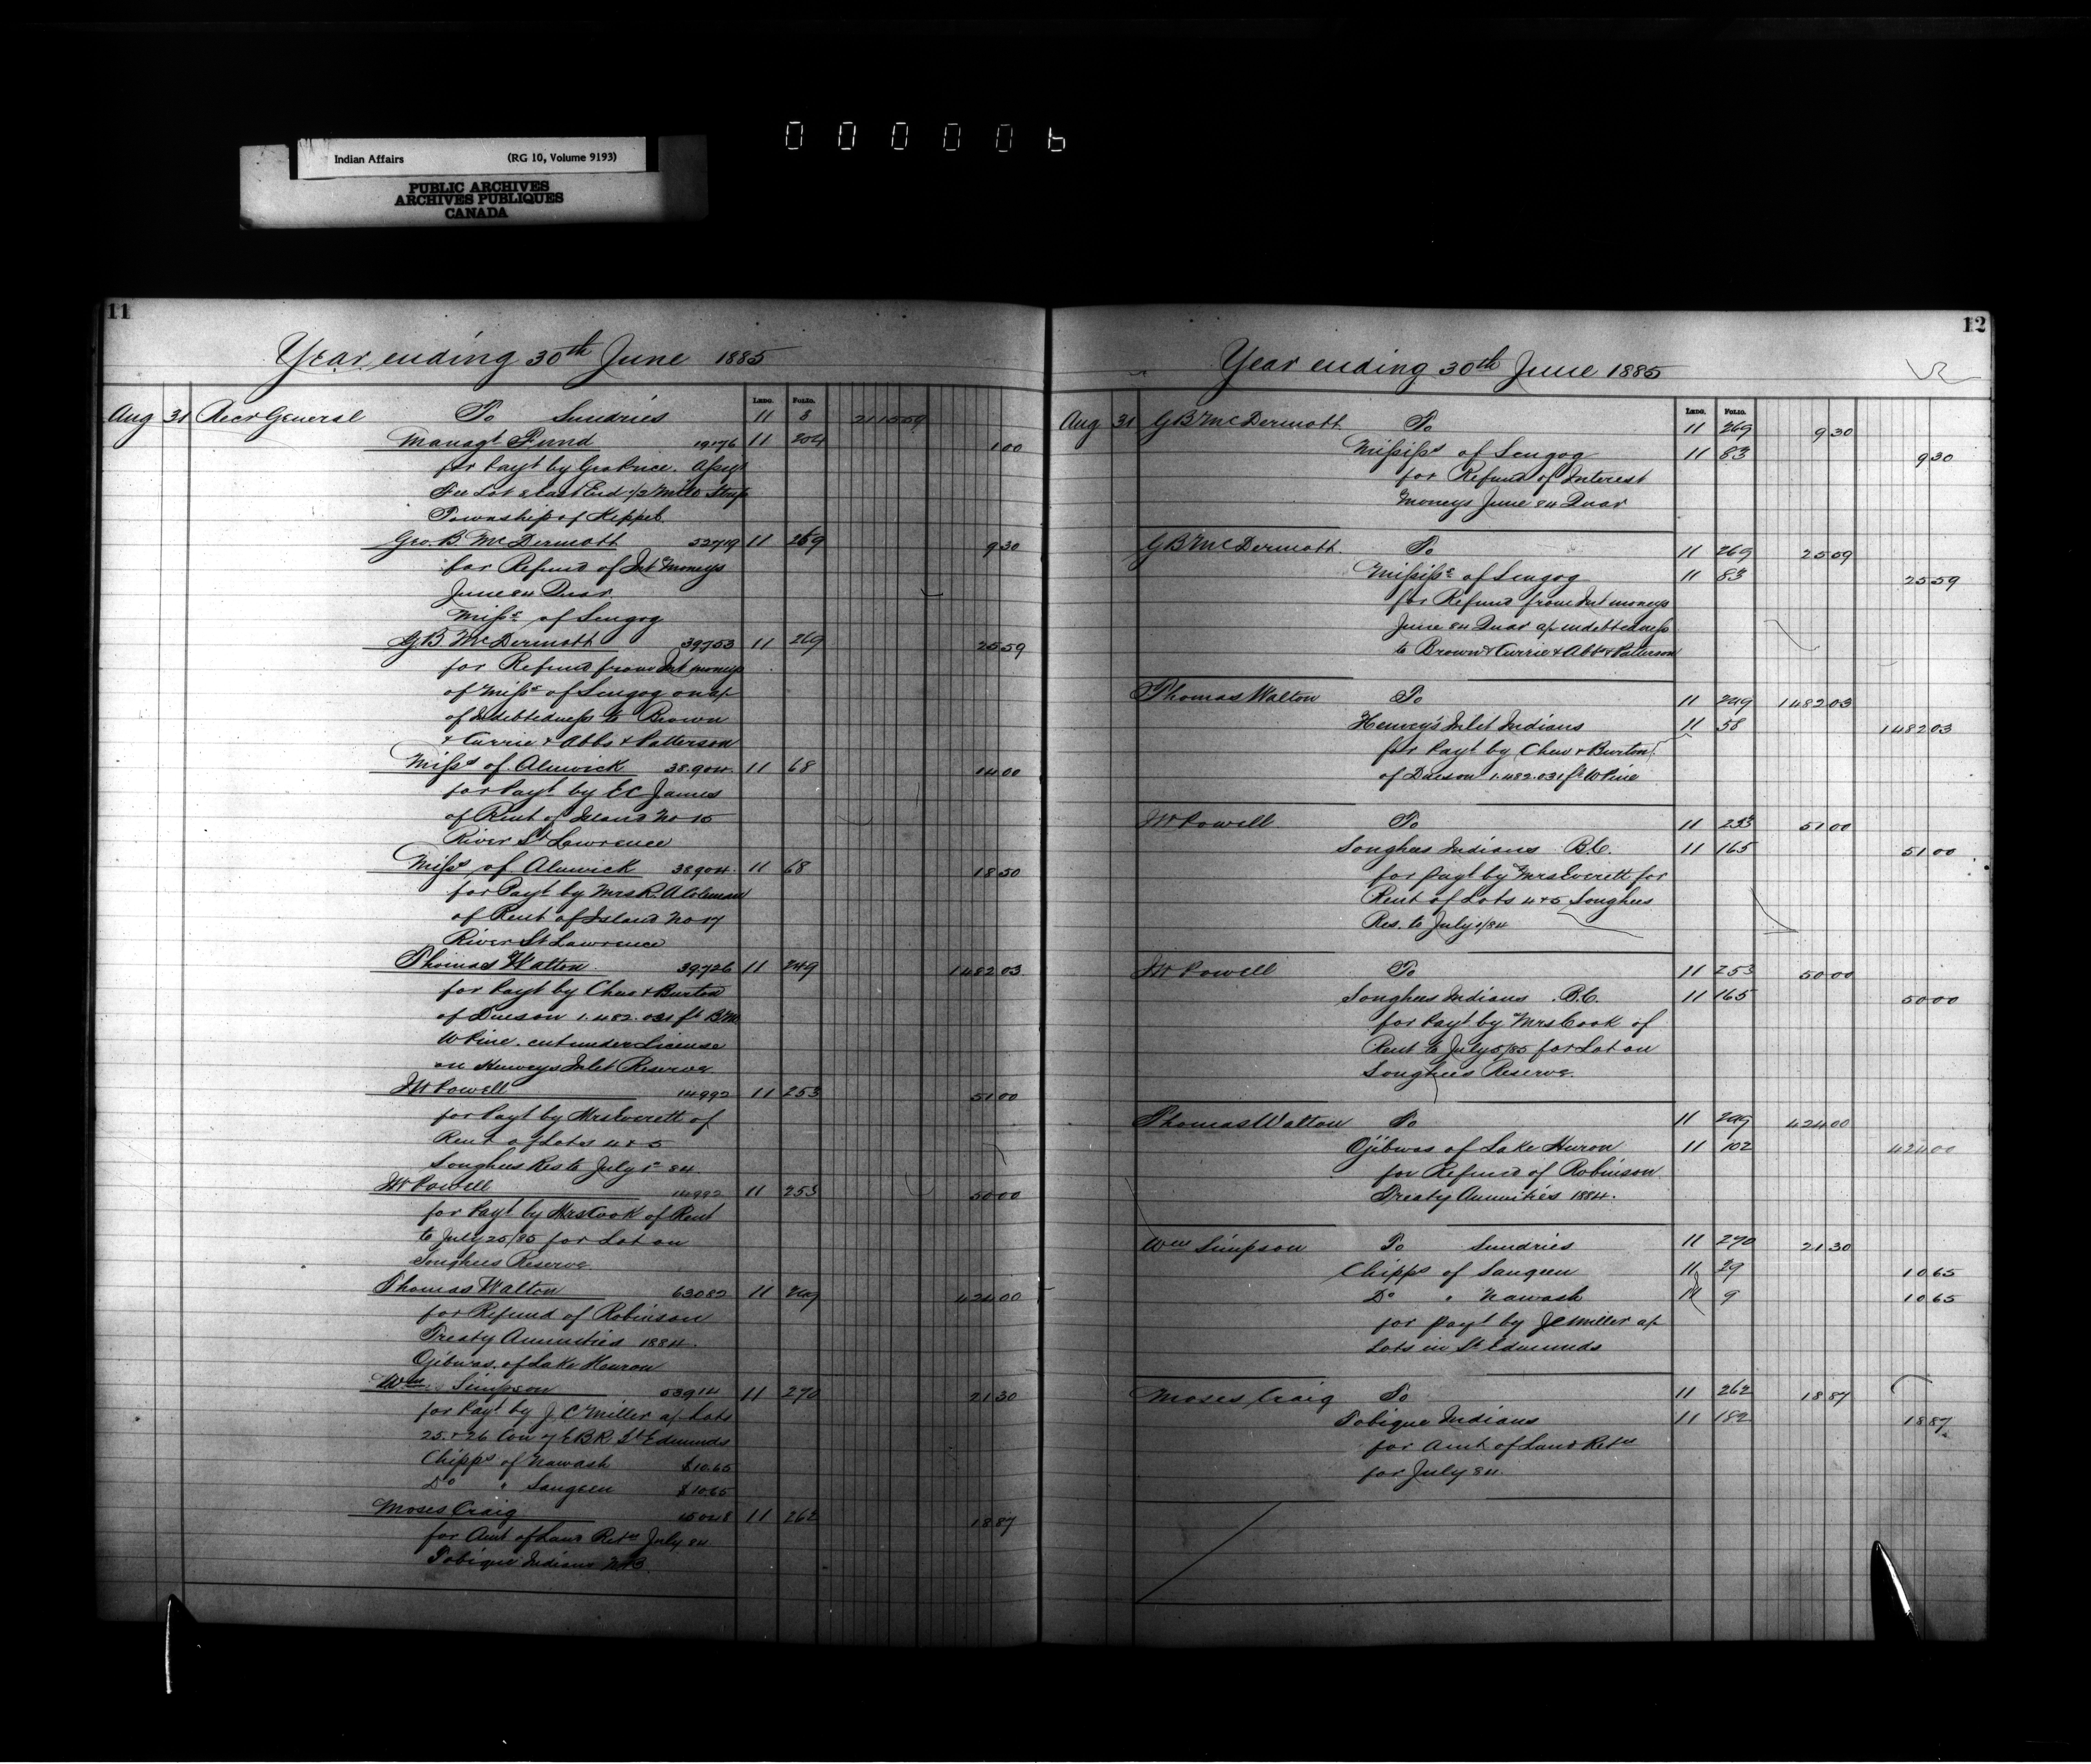 000006
Indian Affairs (RG 10, Volume 9193)
PUBLIC ARCHIVES
ARCHIVES PUBLIQUES
CANADA
11
Year ending 30th June 1885
LEDG. FOLIO.
Aug 31 Recr General To Sundries 11 8 2115 09
Managt Fund 19176 11 204 1 00
for Payt by Geo Price. Assigt
Fee Lot & East End 1/2 Mile Strip
Township of Keppel
Geo. B. McDermott 52719 11 269 9 30
for Refund of Int Moneys
June 84 Quar
Misss of Scugog
G B McDermott 39753 11 269 25 59
for Refund from Int moneys
of Misss of Scugog on a/c
of Indebtedness to Brown
& Currie & Abbs & Patterson
Misss of Alnwick 38904 11 68 14 00
for Payt by E C James
of Rent of Island No 15
River St Lawrence
Misss of Alnwick 38904 11 68 18 50
for Payt by Mrs R. A Coleman
of Rent of Island No 17
River St Lawrence
Thomas Walton 39726 11 249 1482 03
for Payt by Chew & Burton
of Dues on 1.482.031 ft B M
W Pine. cut under License
on Henveys Inlet Reserve
I W Powell 14992 11 253 51 00
for Payt by Mrs Everett of
Rent of Lots 4 & 5
Songhees Res to July 1st 84
I W Powell 14992 11 253 50 00
for Payt by Mrs Cook of Rent
to July 25/85 for Lot on
Songhees Reserve
Thomas Walton 63082 11 249 424 00
for Refund of Robinson
Treaty Annuities 1884.
Ojibwas. of Lake Heuron
Wm Simpson 53914 11 270 21 30
for Payt by J. C Miller a/c Lots
25 & 26 Con 7 E B R St Edmunds
Chipps of Nawash $10.65
Do " Saugeen $10.65
Moses Craig 15048 11 262 18 87
for Amt of Land Retn July 84
Tobique Indians N.B.
12
Year ending 30th June 1885
LEDG. FOLIO.
Aug 31 G B McDermott To 11 269 9 30
Mississ of Scugog 11 83 9 30
for Refund of Interest
Moneys June 84 Quar
G B McDermott To 11 269 25 59
Mississ of Scugog 11 83 25 59
for Refund from Int moneys
June 84 Quar a/c indebtedness
to Brown & Currie & Abbs & Patterson
Thomas Walton To 11 249 1482 03
Henvey's Inlet Indians 11 58 1482 03
for Payt by Chew & Burton
of Dues on 1.482.031 ft W Pine
I W Powell To 11 253 51 00
Songhees Indians B.C. 11 165 51 00
for payt by Mrs Everett for
Rent of Lots 4 & 5 Songhees
Res. to July 1/84
I W Powell To 11 253 50 00
Songhees Indians B.C. 11 165 50 00
for Payt by Mrs Cook of
Rent to July 5/85 for Lot on
Songhees Reserve.
Thomas Walton To 11 249 424 00
Ojibwas of Lake Huron 11 102 424 00
for Refund of Robinson
Treaty Annuities 1884.
Wm Simpson To Sundries 11 270 21 30
Chipps of Saugeen 11 29 10 65
Do " Nawash 11 9 10 65
for payt by J C Miller a/c
Lots in St Edmunds
Moses Craig To 11 262 18 87
Tobique Indians 11 182 18 87
for Amt of Land Retn
for July 84.